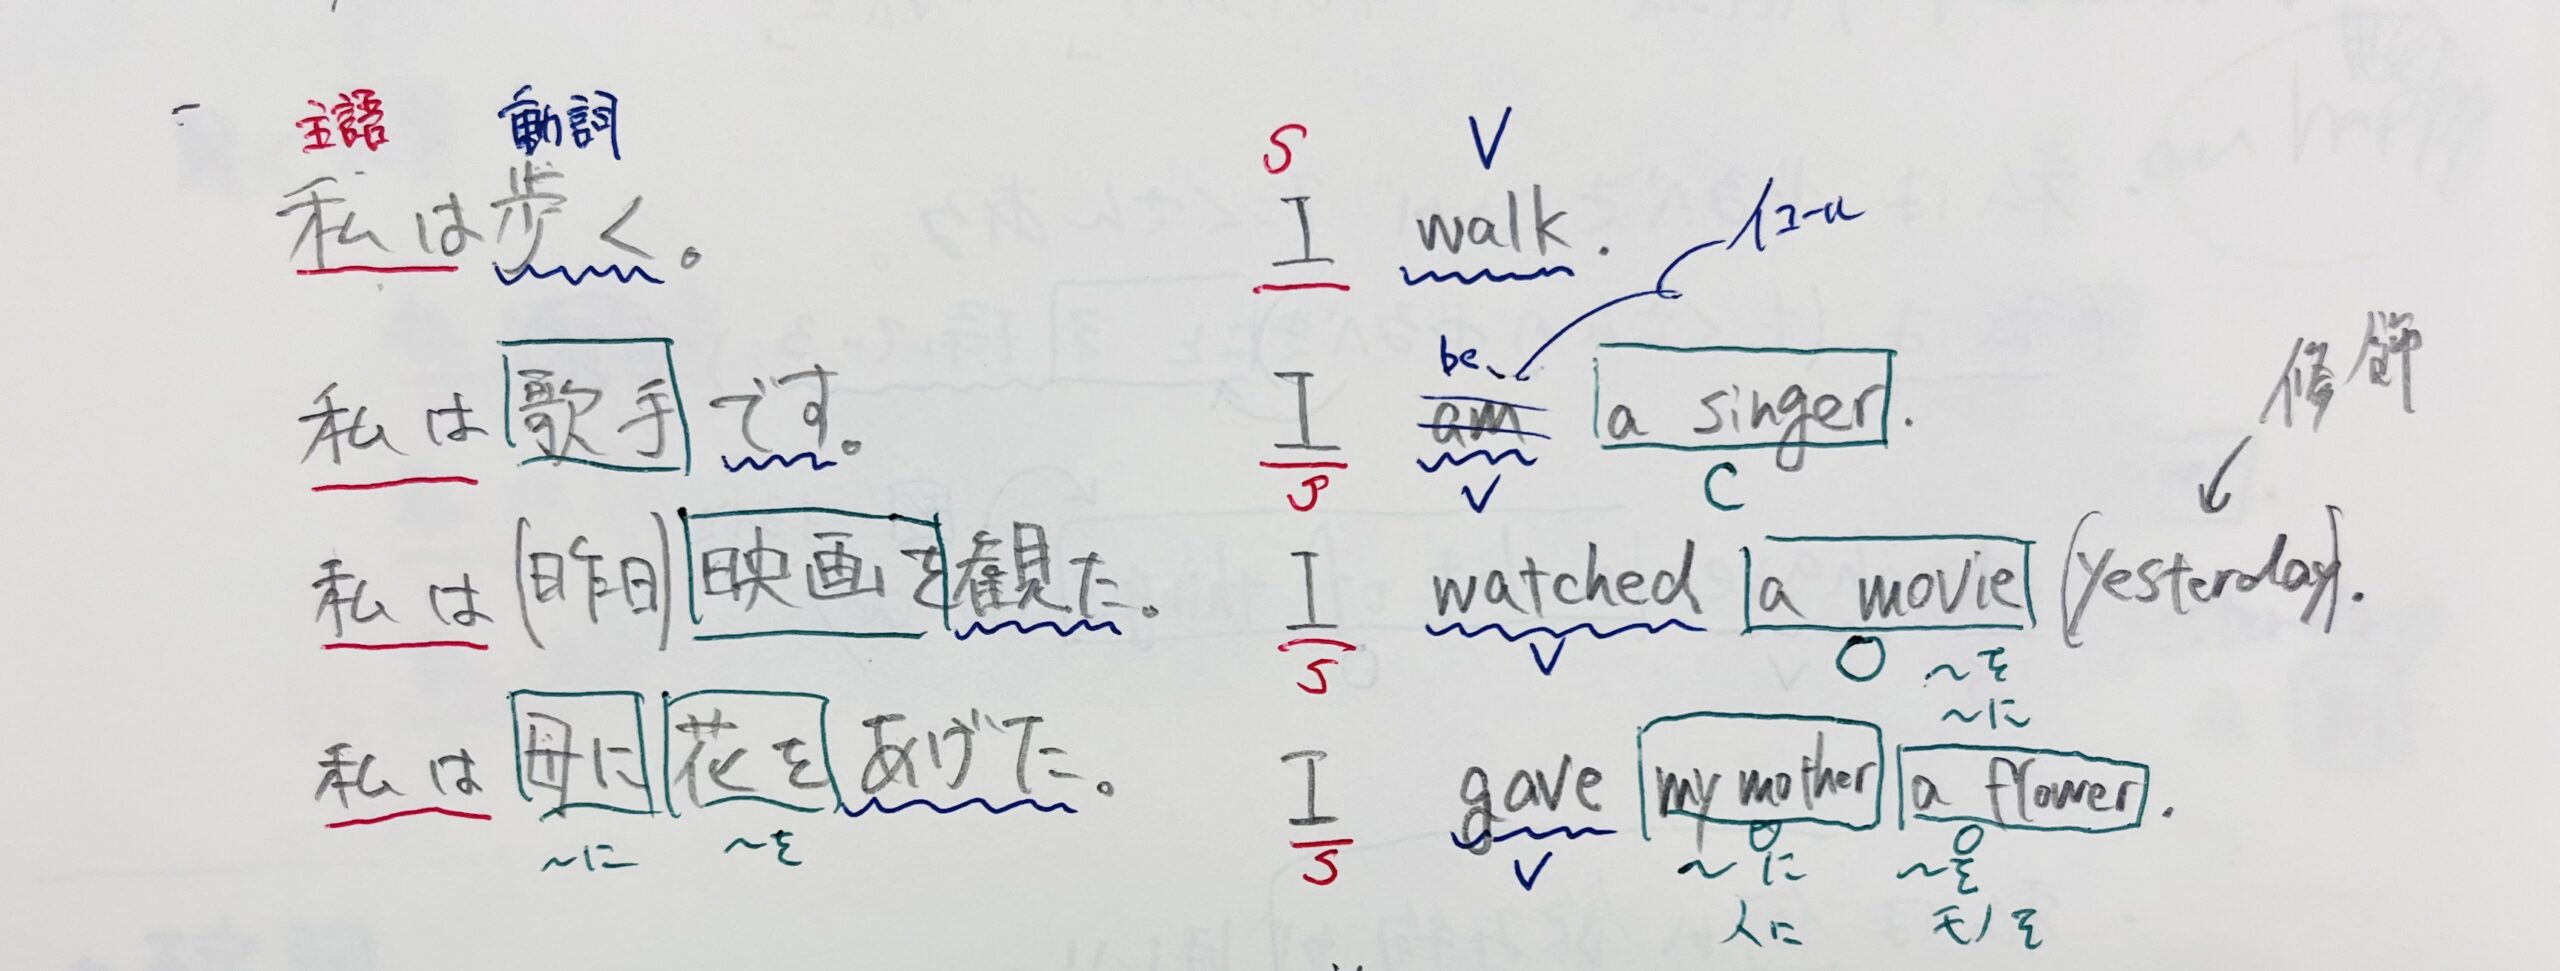 主語 動詞 S V
私は歩く。 I walk.
イコール
be
私は歌手です。 I am a singer.
S V C
修飾
私は(昨日)映画を観た。 I watched a movie (yesterday).
S V O ~を
~に
私は母に花をあげた。 I gave my mother a flower.
~に ~を S V O O
~に ~を
人に モノを